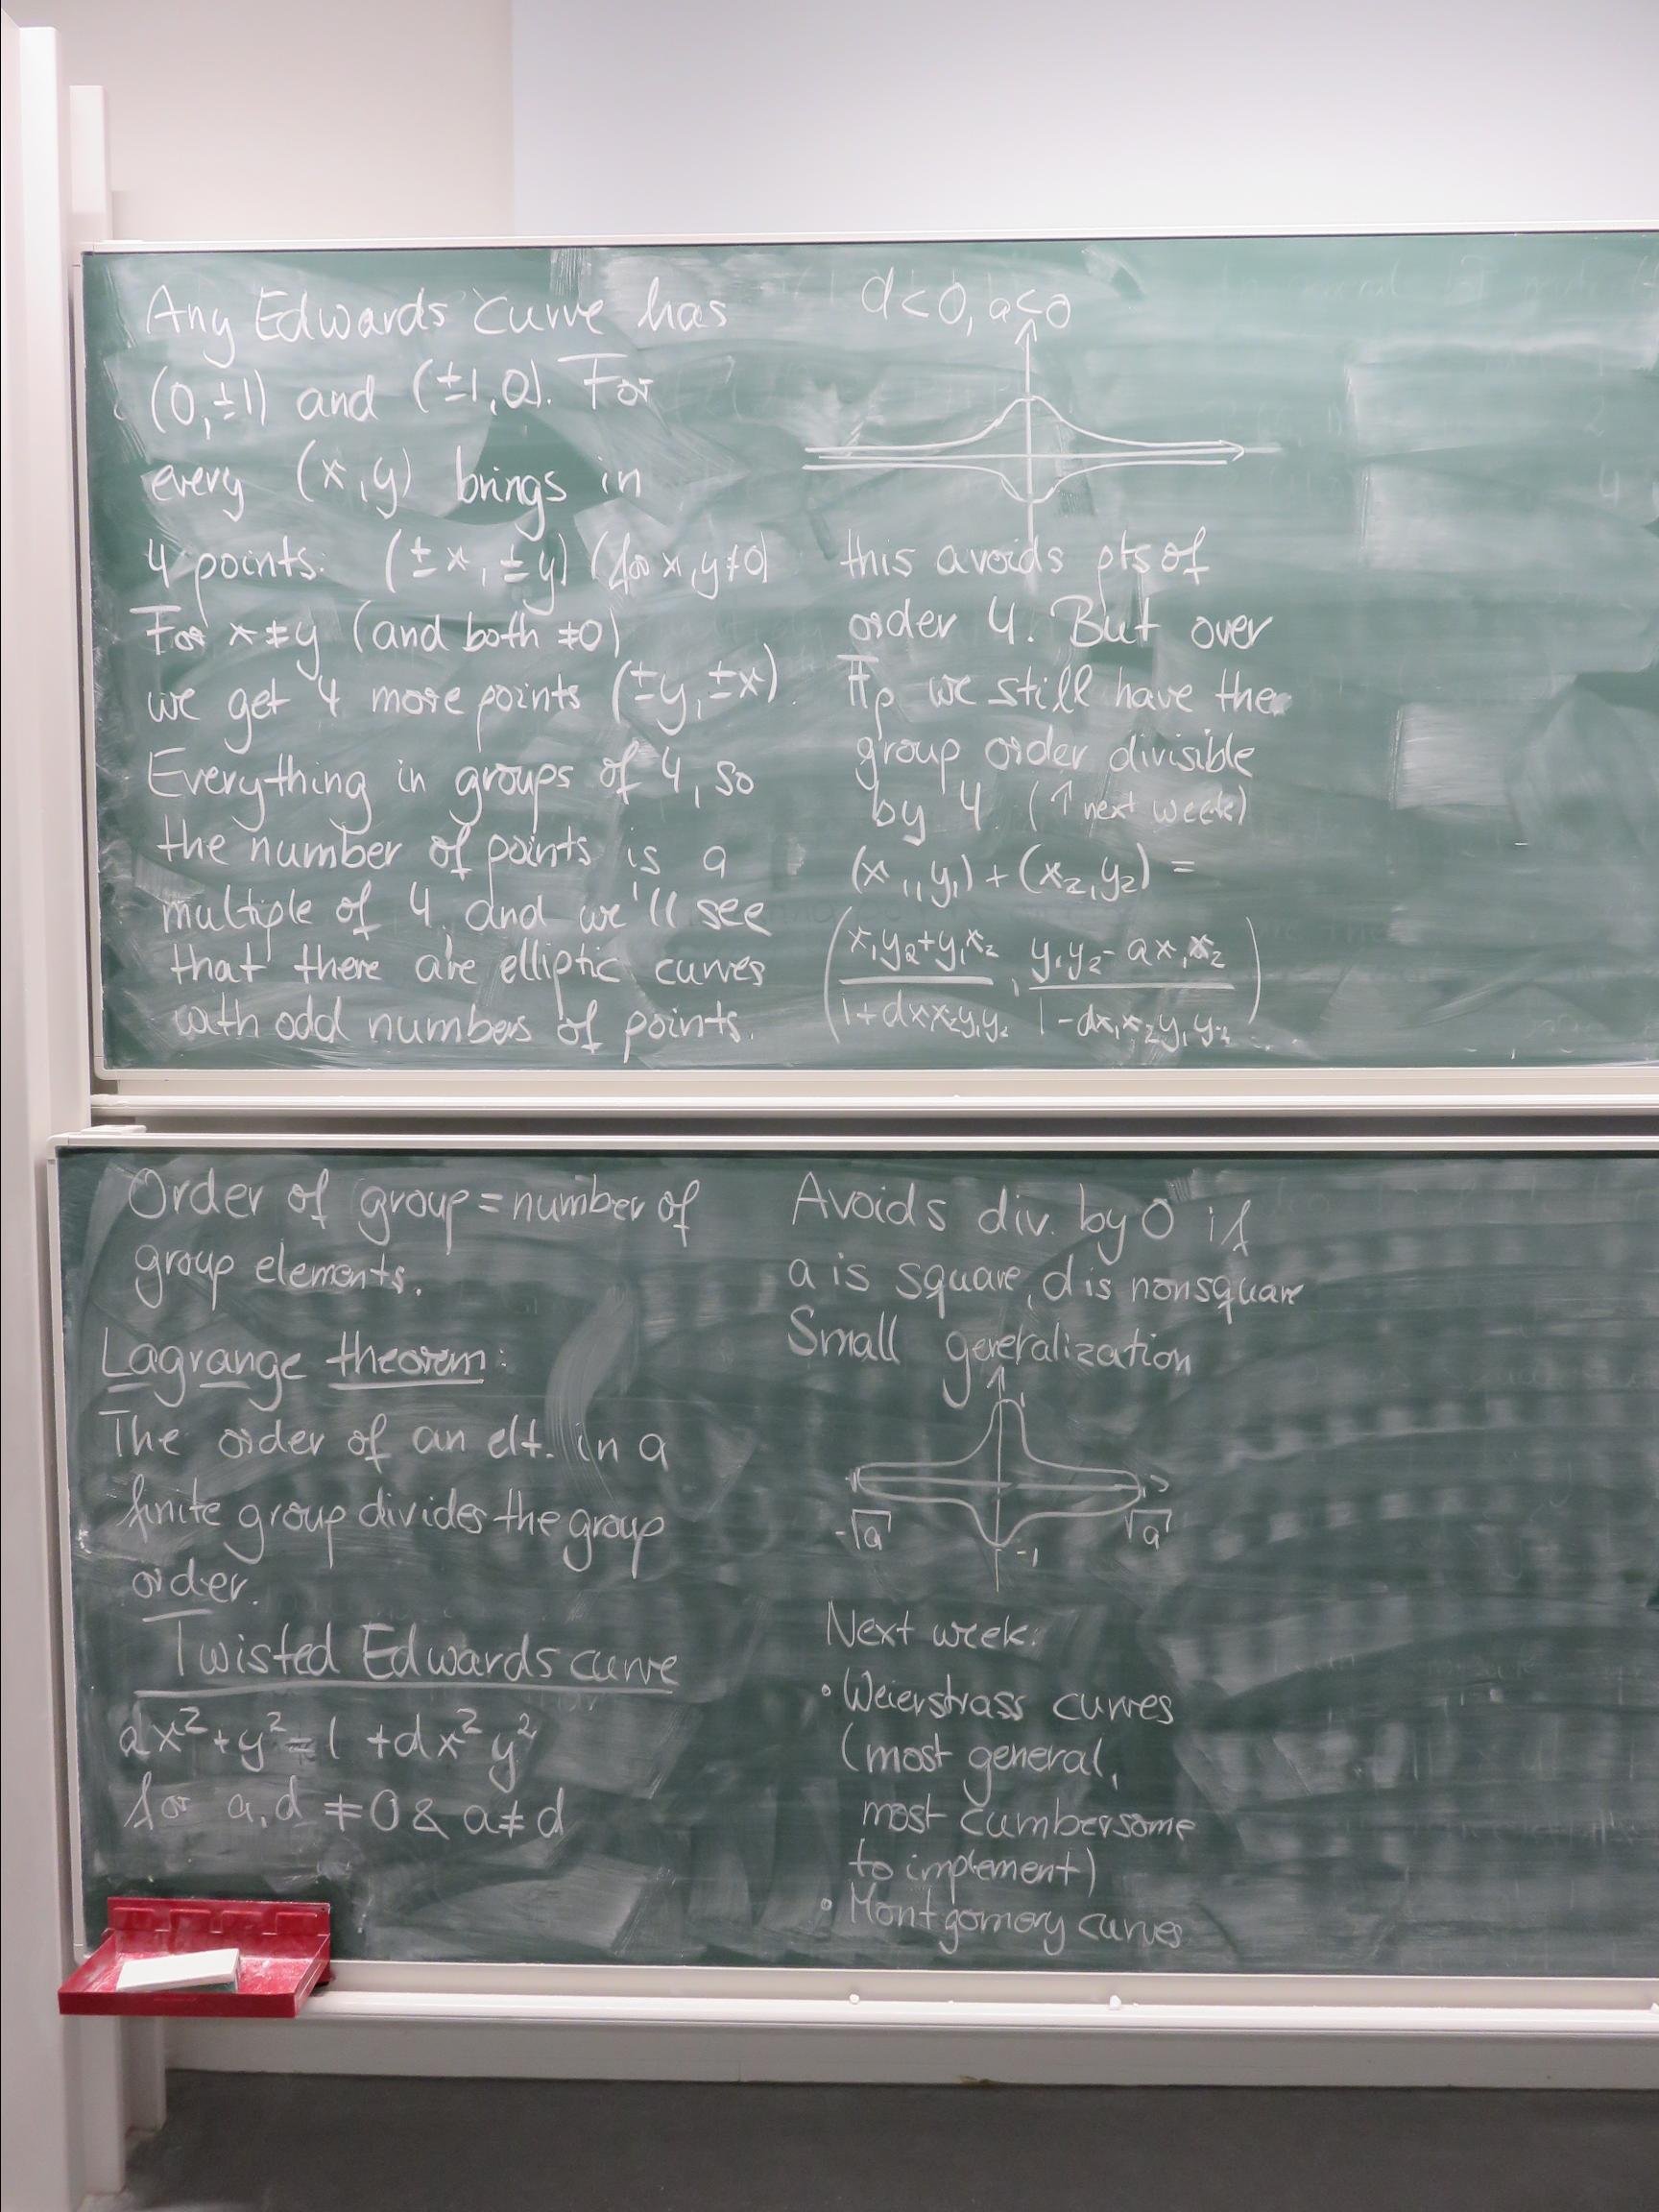 Any Edwards curve has
(0,±1) and (±1,0). For
every (x,y) brings in
4 points: (±x,±y) (for x,y≠0)
For x≠y (and both ≠0)
we get 4 more points (±y,±x).
Everything in groups of 4, so
the number of points is a
multiple of 4, and we'll see
that there are elliptic curves
with odd numbers of points.
d<0, a<0
this avoids pts of
order 4. But over
𝔽p we still have the
group order divisible
by 4. (↑ next week)
(x₁,y₁)+(x₂,y₂) =
(x₁y₂+y₁x₂ / 1+dxx₂y₁y₂, y₁y₂-ax₁x₂ / 1-dx₁x₂y₁y₂)
Order of group = number of
group elements.
Lagrange theorem:
The order of an elt. in a
finite group divides the group
order.
Twisted Edwards curve
ax²+y²=1+dx²y²
for a,d ≠0 & a≠d
Avoids div. by 0 if
a is square, d is nonsquare
Small generalization
1
-√a
√a
-1
Next week:
• Weierstrass curves
(most general,
most cumbersome
to implement)
• Montgomery curves